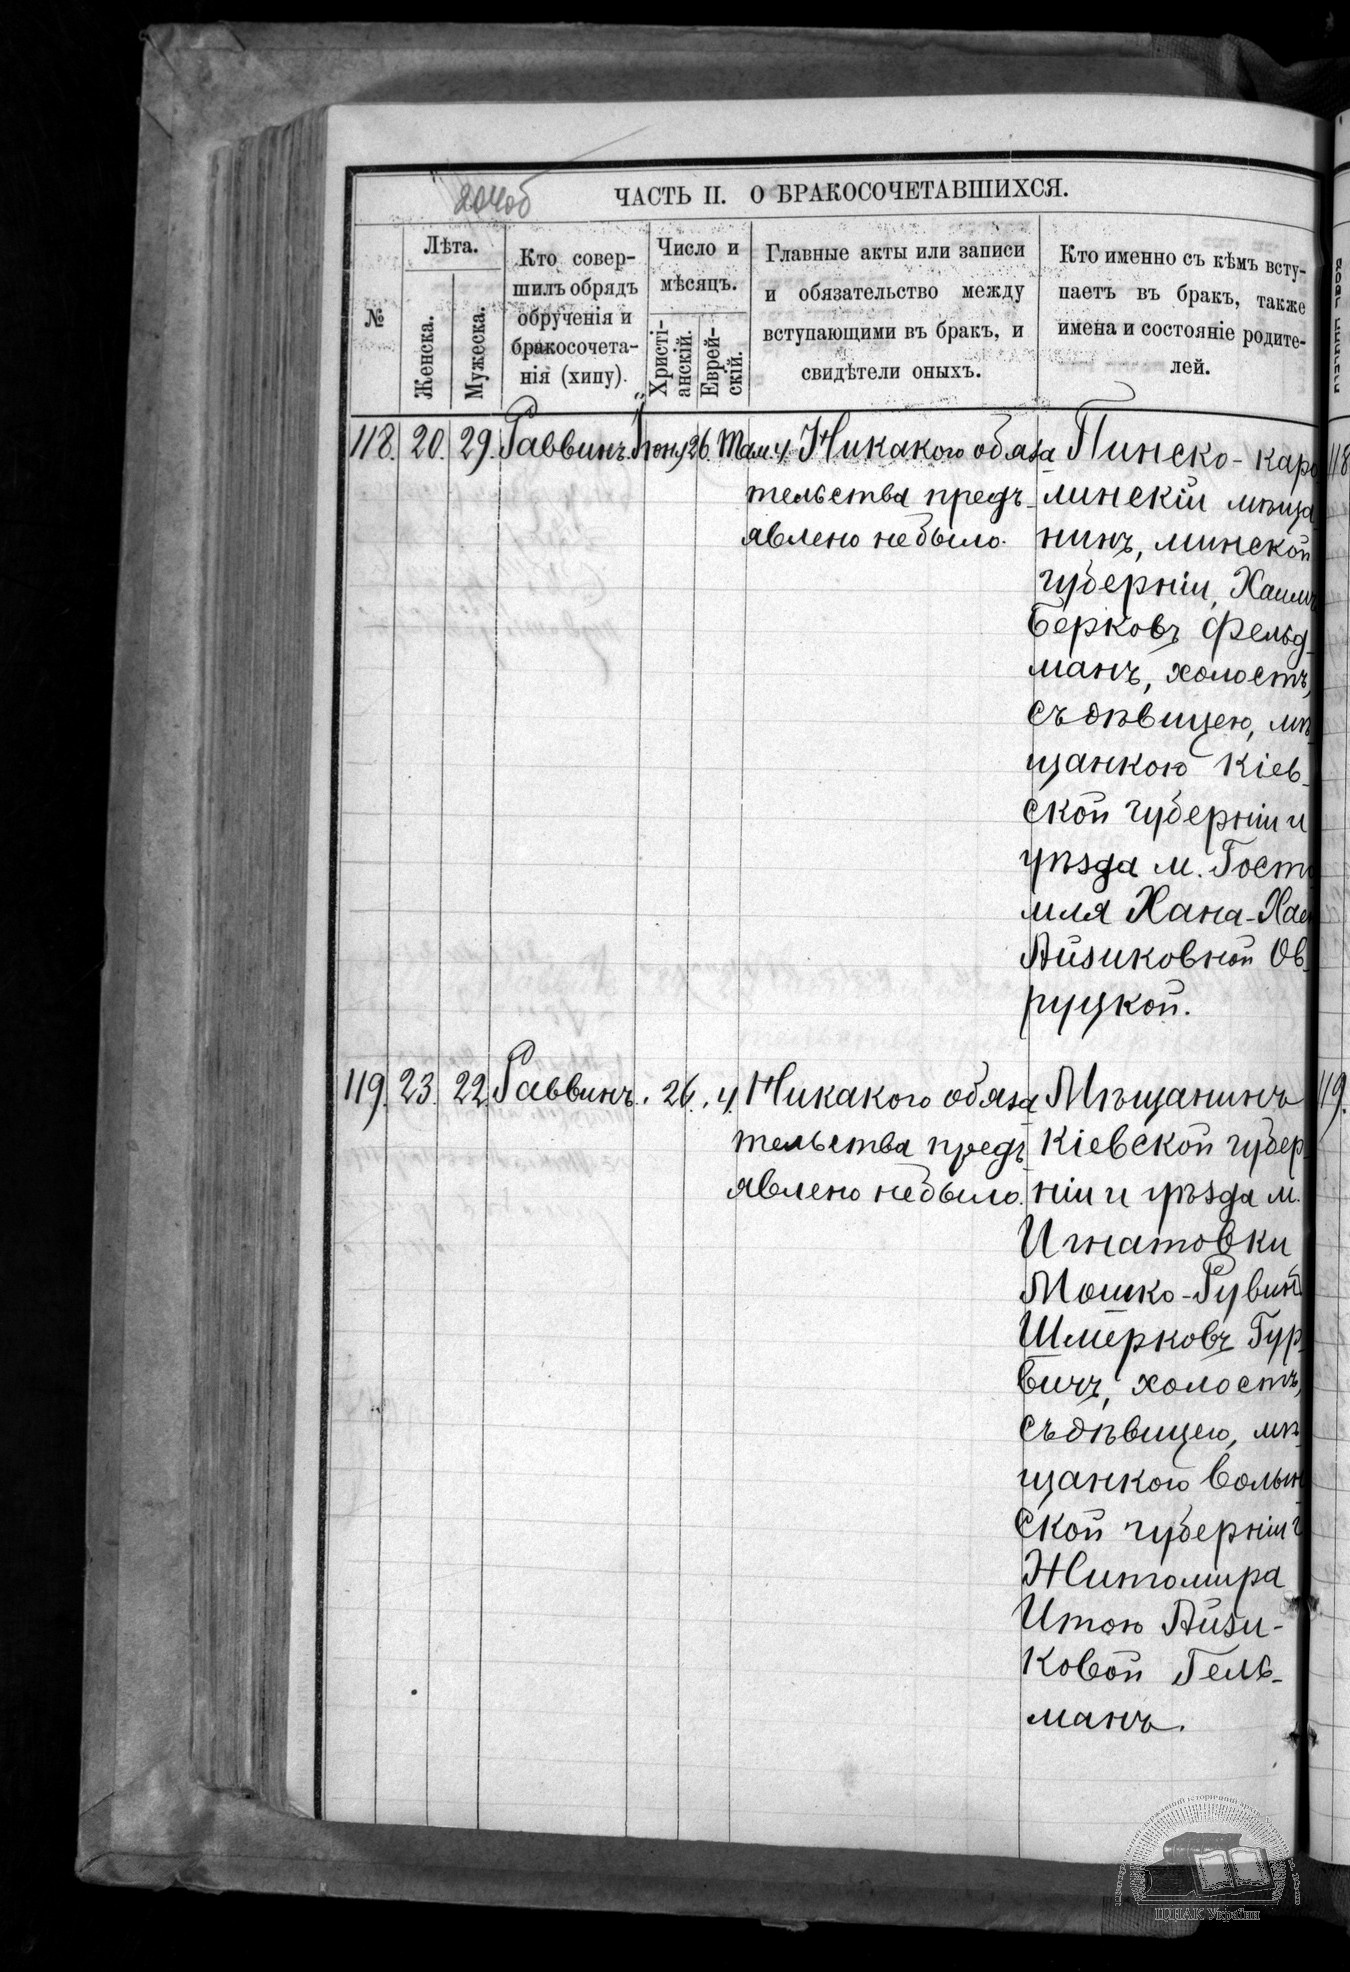 204об
ЧАСТЬ II. О БРАКОСОЧЕТАВШИХСЯ.
№
Лѣта.
Женска.
Мужеска.
Кто совер-
шилъ обрядъ
обрученія и
бракосочета-
нія (хипу).
Число и
мѣсяцъ.
Христі-
анскій.
Еврей-
скій.
Главные акты или записи
и обязательство между
вступающими въ бракъ, и
свидѣтели оныхъ.
Кто именно съ кѣмъ всту-
паетъ въ бракъ, также
имена и состояніе родите-
лей.
118. 20. 29. Раввинъ. Іюнь 26. Там. 4. Никакого обяза
тельства предъ-
явлено не было.
Пинско-каро
линскій мѣща
нинъ, минской
губерніи, Хаимъ
Берковъ Фельд-
манъ, холостъ,
съ дѣвицею, мѣ-
щанкою Кіев-
ской губерніи и
уѣзда м. Госто
мля Хана-Хаей
Айзиковной Ов-
руцкой.
118
119. 23. 22. Раввинъ. 26. 4. Никакого обяза
тельства предъ-
явлено не было.
Мѣщанинъ
Кіевской губер-
ніи и уѣзда м.
Игнатовки
Мошко-Рувинъ
Шмерковъ Гур-
вичъ, холостъ,
съ дѣвицею, мѣ-
щанкою Волын
ской губерніи г.
Житомира
Итою Айзи-
ковой Гель-
манъ.
119.
ЦДІАК України